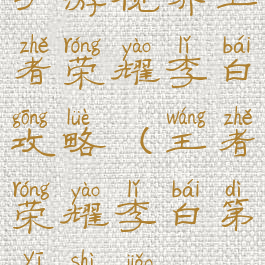 游视界王
zhě róng yào lǐ bái
者荣耀李白
gōng lüè wáng zhě
攻略（王者
róng yào lǐ bái dì
荣耀李白第
yī shì jiǎo